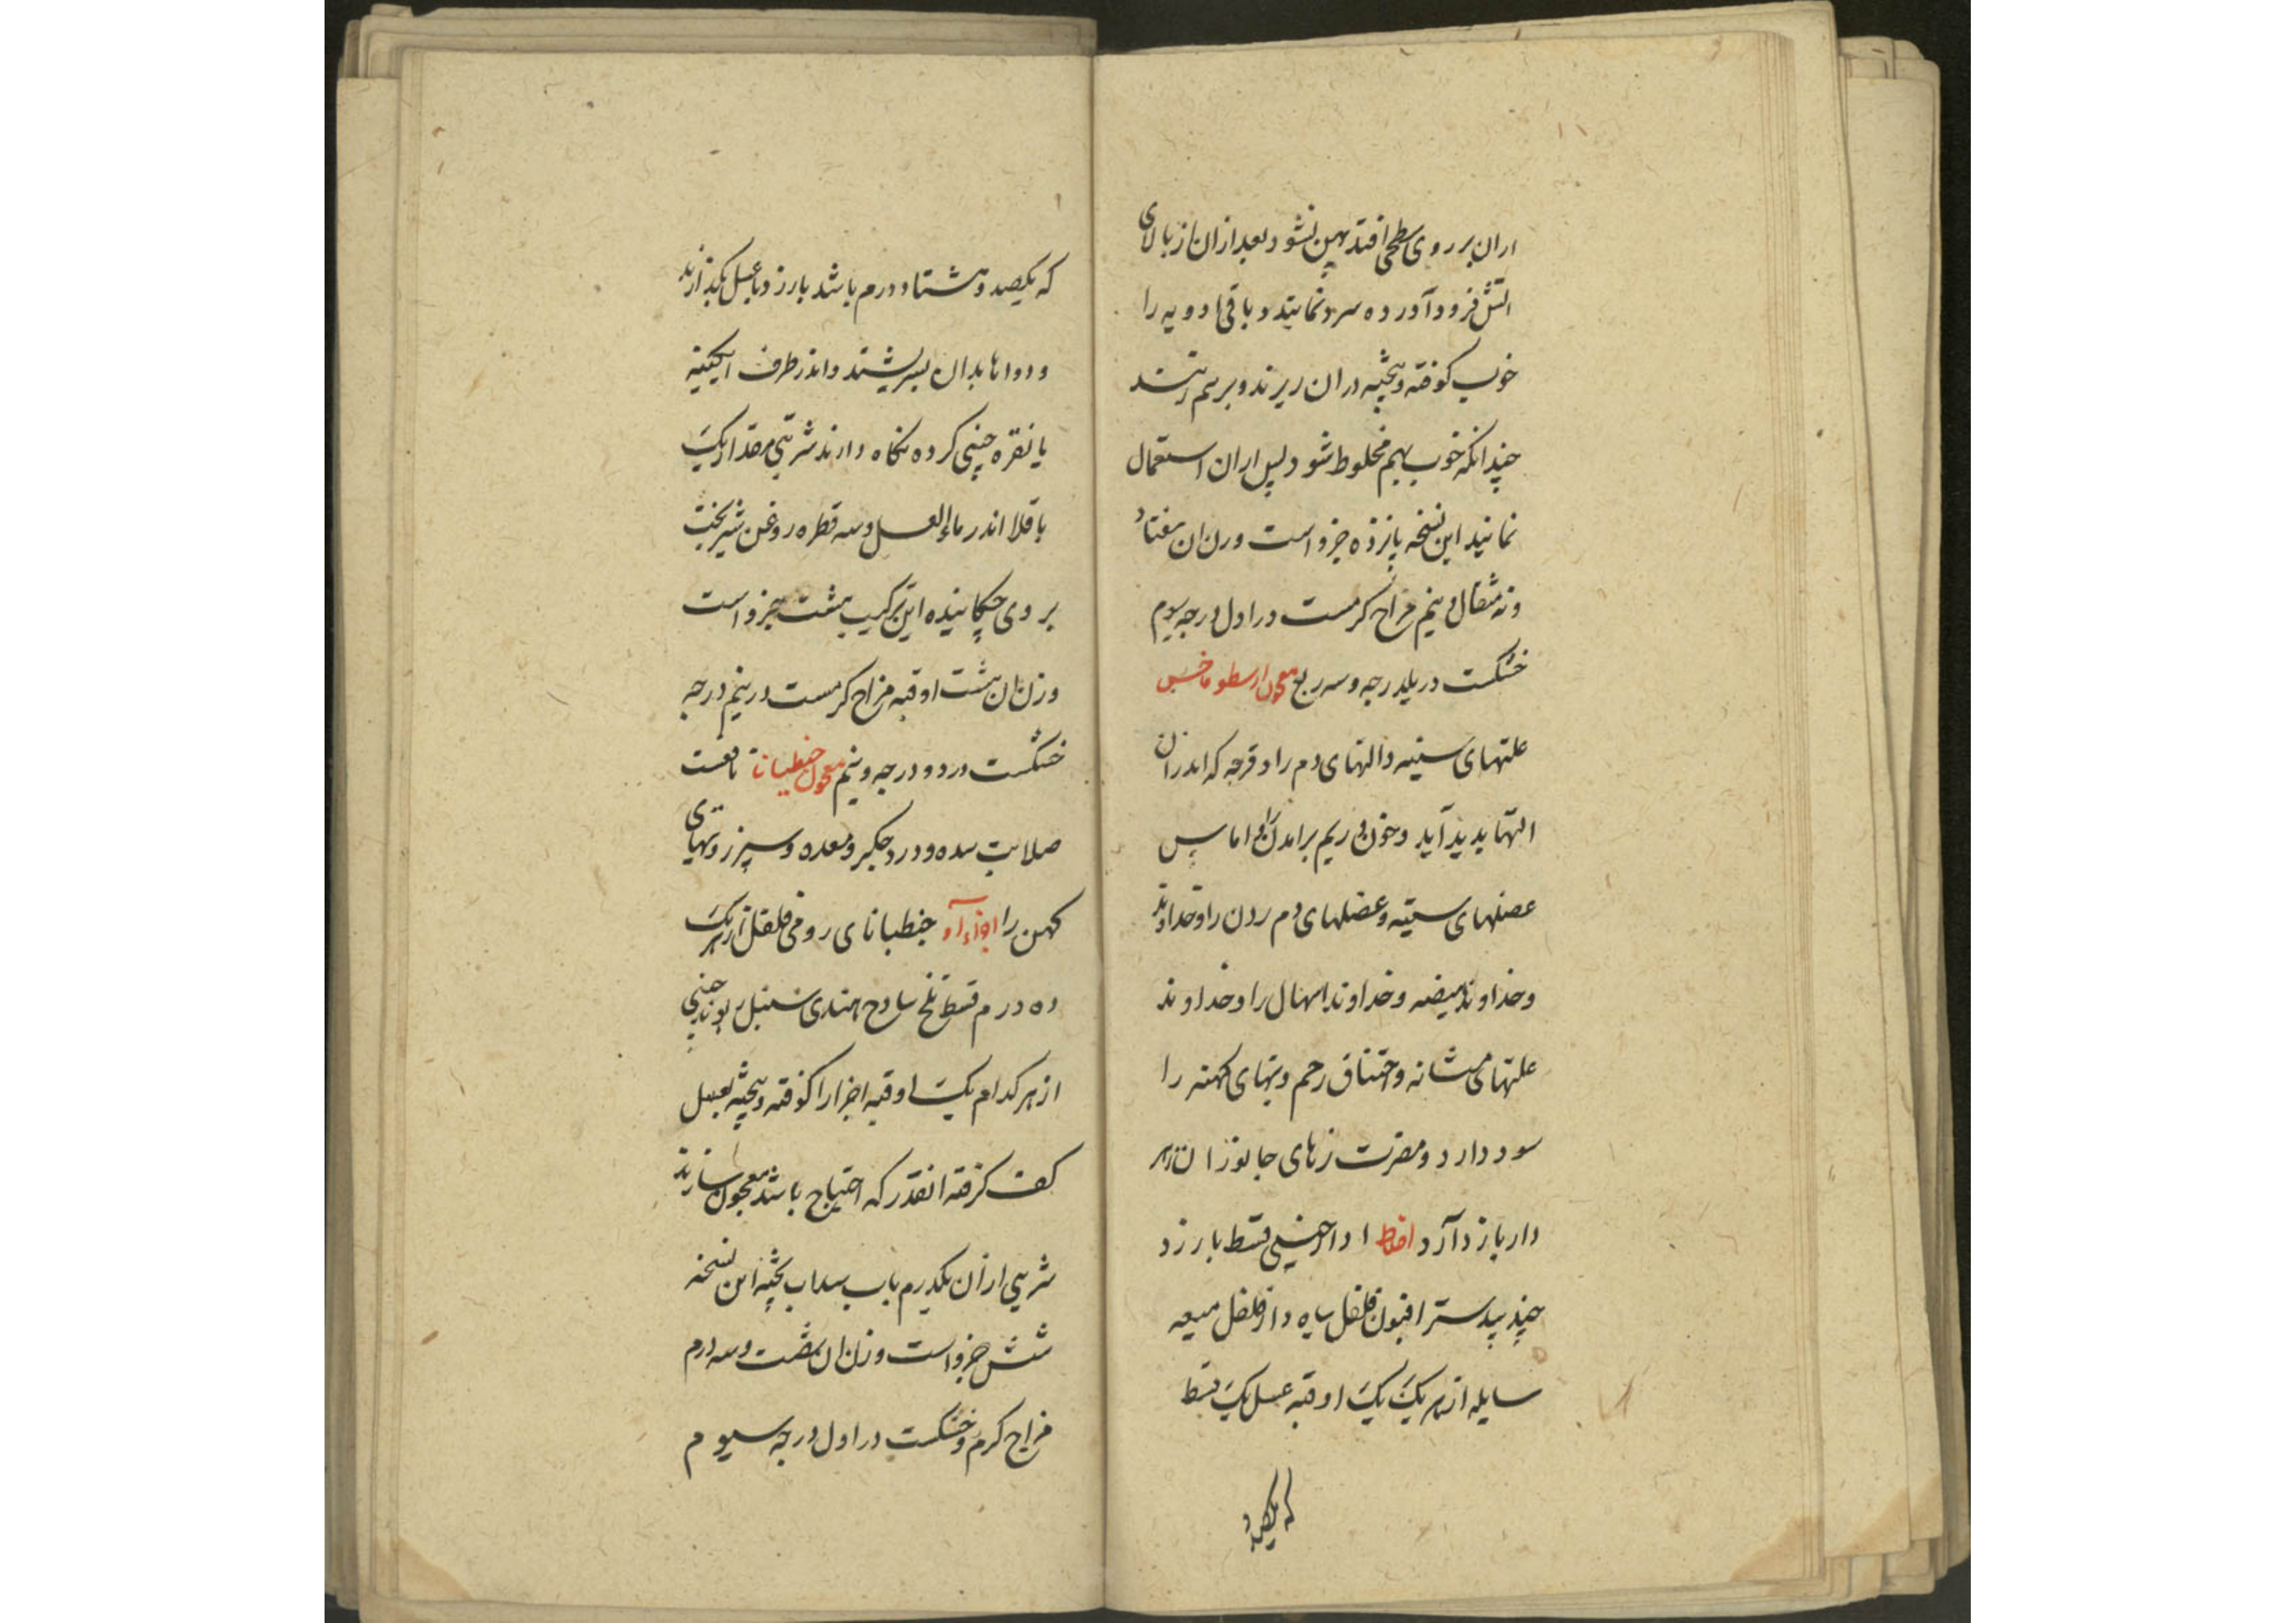 ازان بر روی سطحی افتد پهن نشود بعد ازان از بالای
آتش فرود آورده سرد نمایند و باقی ادویه را
خوب کوفته و بیخته دران ریزند و برهم زنند
چندانکه خوب بهم مخلوط شود پس ازان استعمال
نمایند این نسخه پانزده جزو است وزن آن هفتاد
ونه مثقال و نیم مزاج گرمست در اول درجه سیوم
خشکست در یکدرجه و سه ربع معجون ارسطوماخس
علتهای سینه و التهای دم را و قرحه که اندران
التها پدید آید و خون و ریم برامدن و اماس
عضلهای سینه و عضلهای دم زدن را و خداوند
وخداوند هیضه و خداوند اسهال را و خداوند
علتهای مثانه و اختناق رحم و تبهای کهنه را
سود دارد و مضرت زهرهای جانوران زهر
دار باز دارد اخلاط دارچینی قسط بارزد
جندبیدستر افیون فلفل سیاه دارفلفل میعه
سایله از هر یک یک اوقیه عسل یک قسط
که یکصد و
که یکصد و هشتاد درم باشد بارزد با عسل بگذارند
و دواها بدان بسریشند و اندر ظرف ابگینه
یا نقره چینی کرده نگاه دارند شربتی مقدار یک
باقلا اندر ماء العسل و سه قطره روغن شیربخت
بر وی چکانیده این ترکیب هشت جزو است
وزن ان هشت اوقیه مزاج گرمست در نیم درجه
خشکست در دو درجه و نیم معجون جنطیانا نافعست
صلابت سده و درد جگر و معده و سپرز و تبهای
کهن را اجزاء آن جنطیانای رومی فلفل از هر یک
ده درم قسط تلخ ساذج هندی سنبل ریوند چینی
از هر کدام یک اوقیه اجزا را کوفته و بیخته بعسل
کف گرفته انقدر که احتیاج باشد معجون سازند
شربتی ازان یکدرم باب سداب پخته این نسخه
شش جزو است وزن ان شصت و سه درم
مزاج گرم و خشکست در اول درجه سیوم